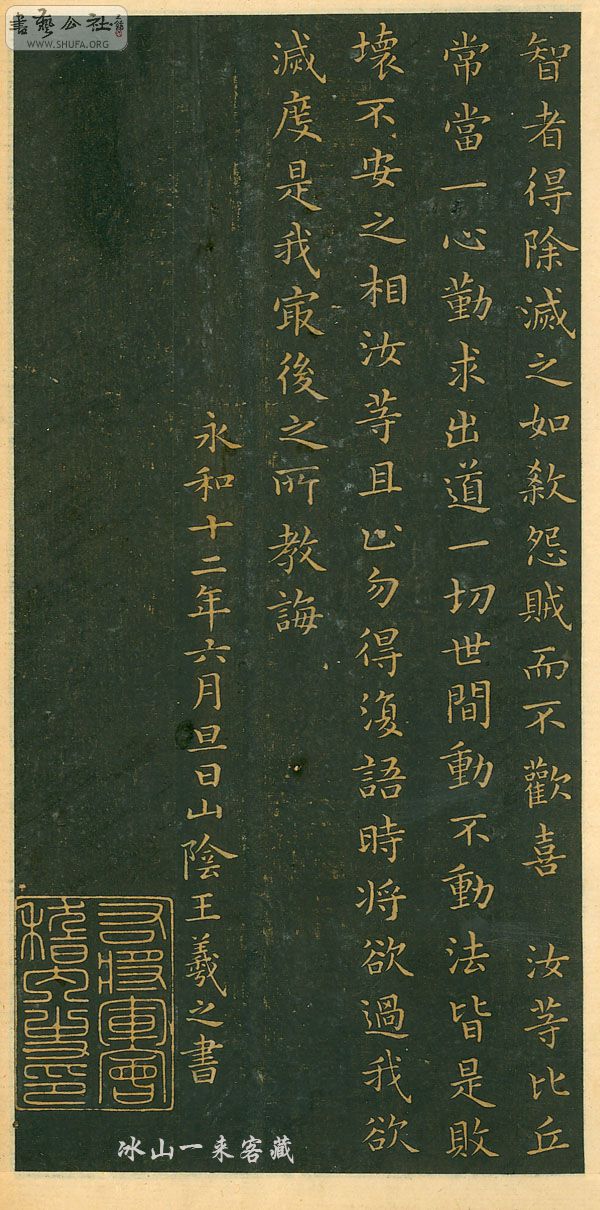 書藝公社
WWW.SHUFA.ORG
智者得除滅之如殺怨賊而不歡喜 汝等比丘
常當一心勤求出道一切世間動不動法皆是敗
壞不安之相汝等且止勿得復語時將欲過我欲
滅度是我最後之所教誨
永和十二年六月旦日山陰王羲之書
右將軍會
稽內史印
冰山一来客藏